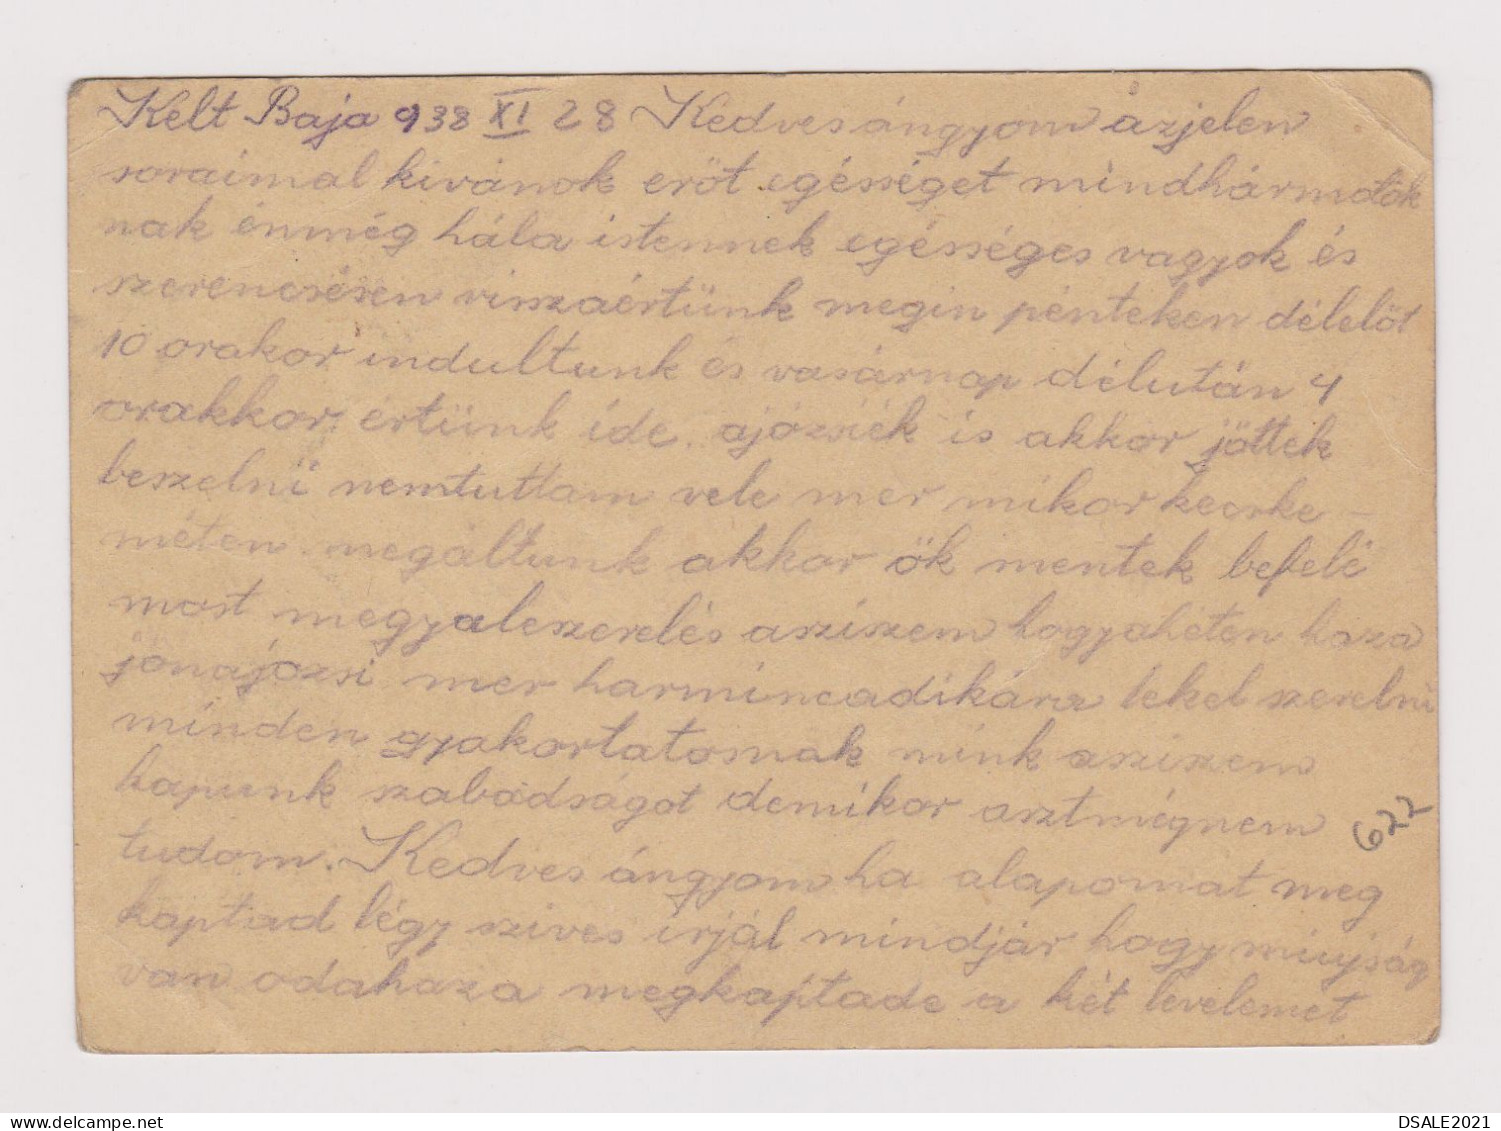 Kelt Baja 938 XI 28 Kedves ángyom azjelen
soraimal kivánok eröt egésséget mindhármotok
nak énmég hála istennek egésséges vagyok és
szerencsésen visszaértünk megin pénteken délelöt
10 orakor indultunk és vasárnap délután 4
orakkor értünk ide. ajózsiék is akkor jöttek
beszelni nemtuttam vele mer mikor kecske-
méten megáltunk akkor ök mentek befelé
most megyaleszerelés asziszem hogyahéten haza
jönajózsi mer harmincadikára lekel szerelni
minden gyakorlatosnak mink asziszem
kapunk szabadságot demikor asztmégnem
tudom. Kedves ángyom ha alapomat meg
kaptad légy szives irjál mindjár hogy miujság
van odahaza megkaptade a két levelemet
622
DSALE2021